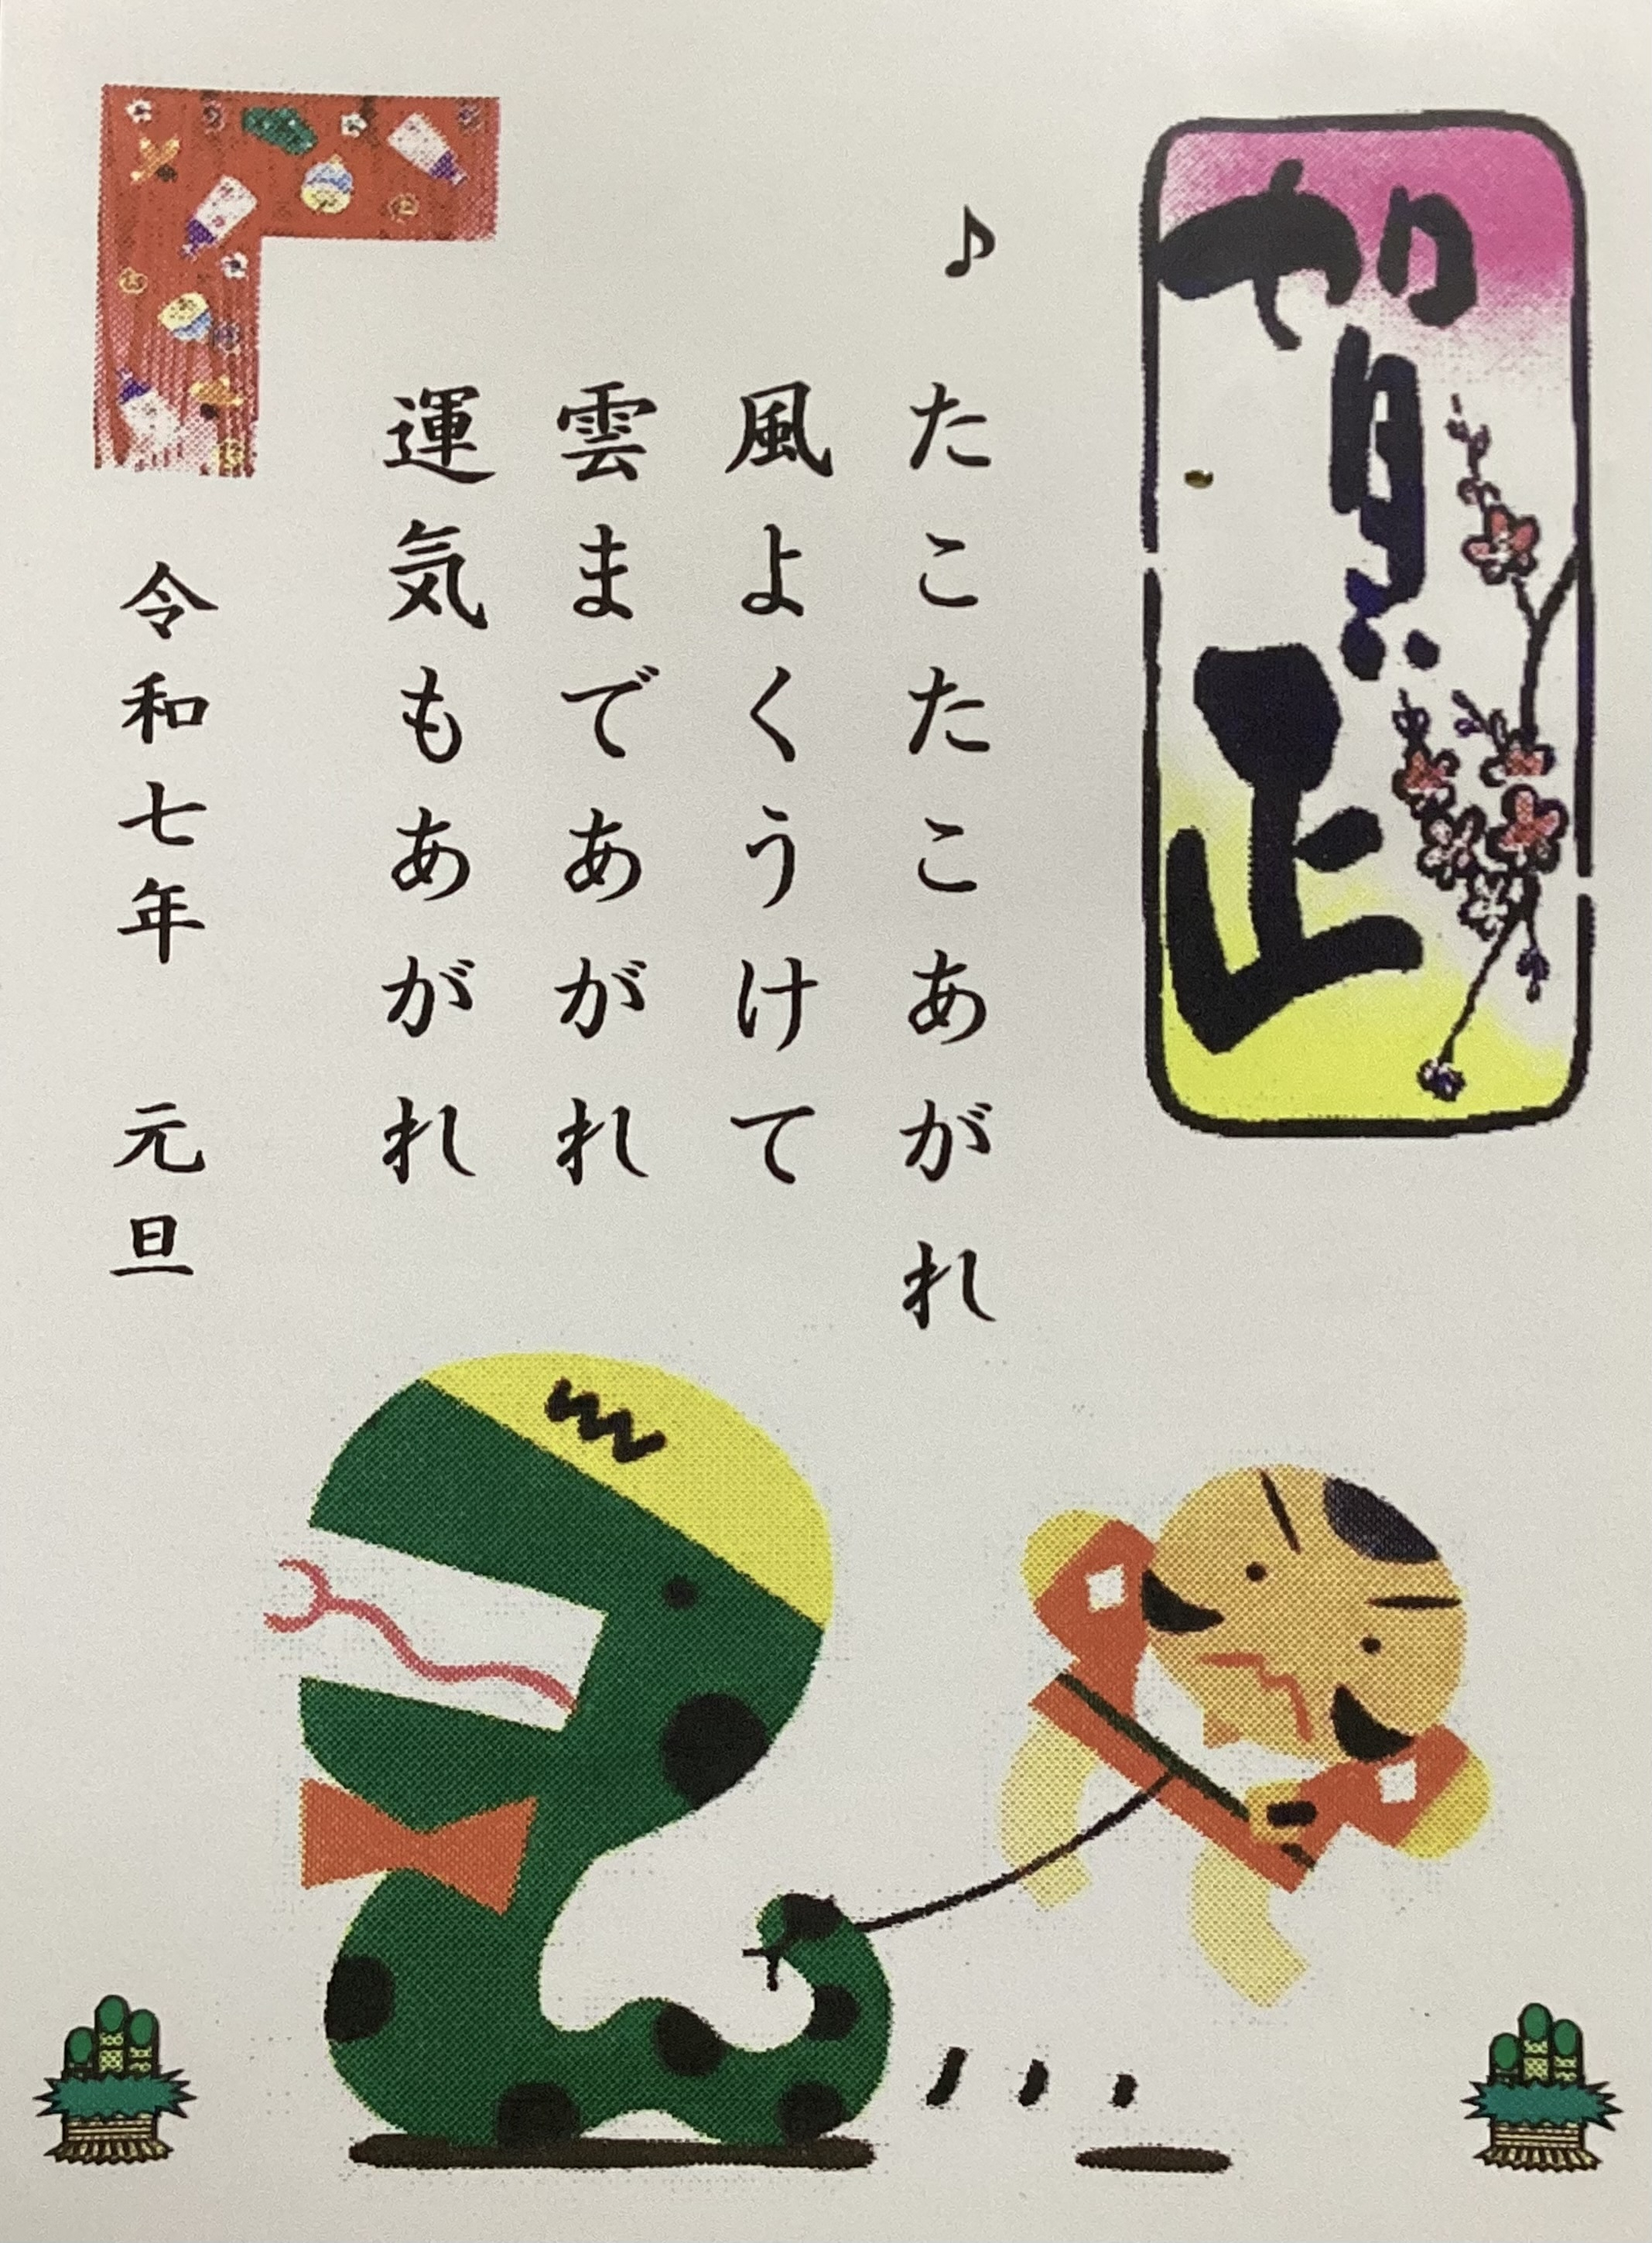 賀正
♪
たこたこあがれ
風よくうけて
雲まであがれ
運気もあがれ
令和七年 元旦